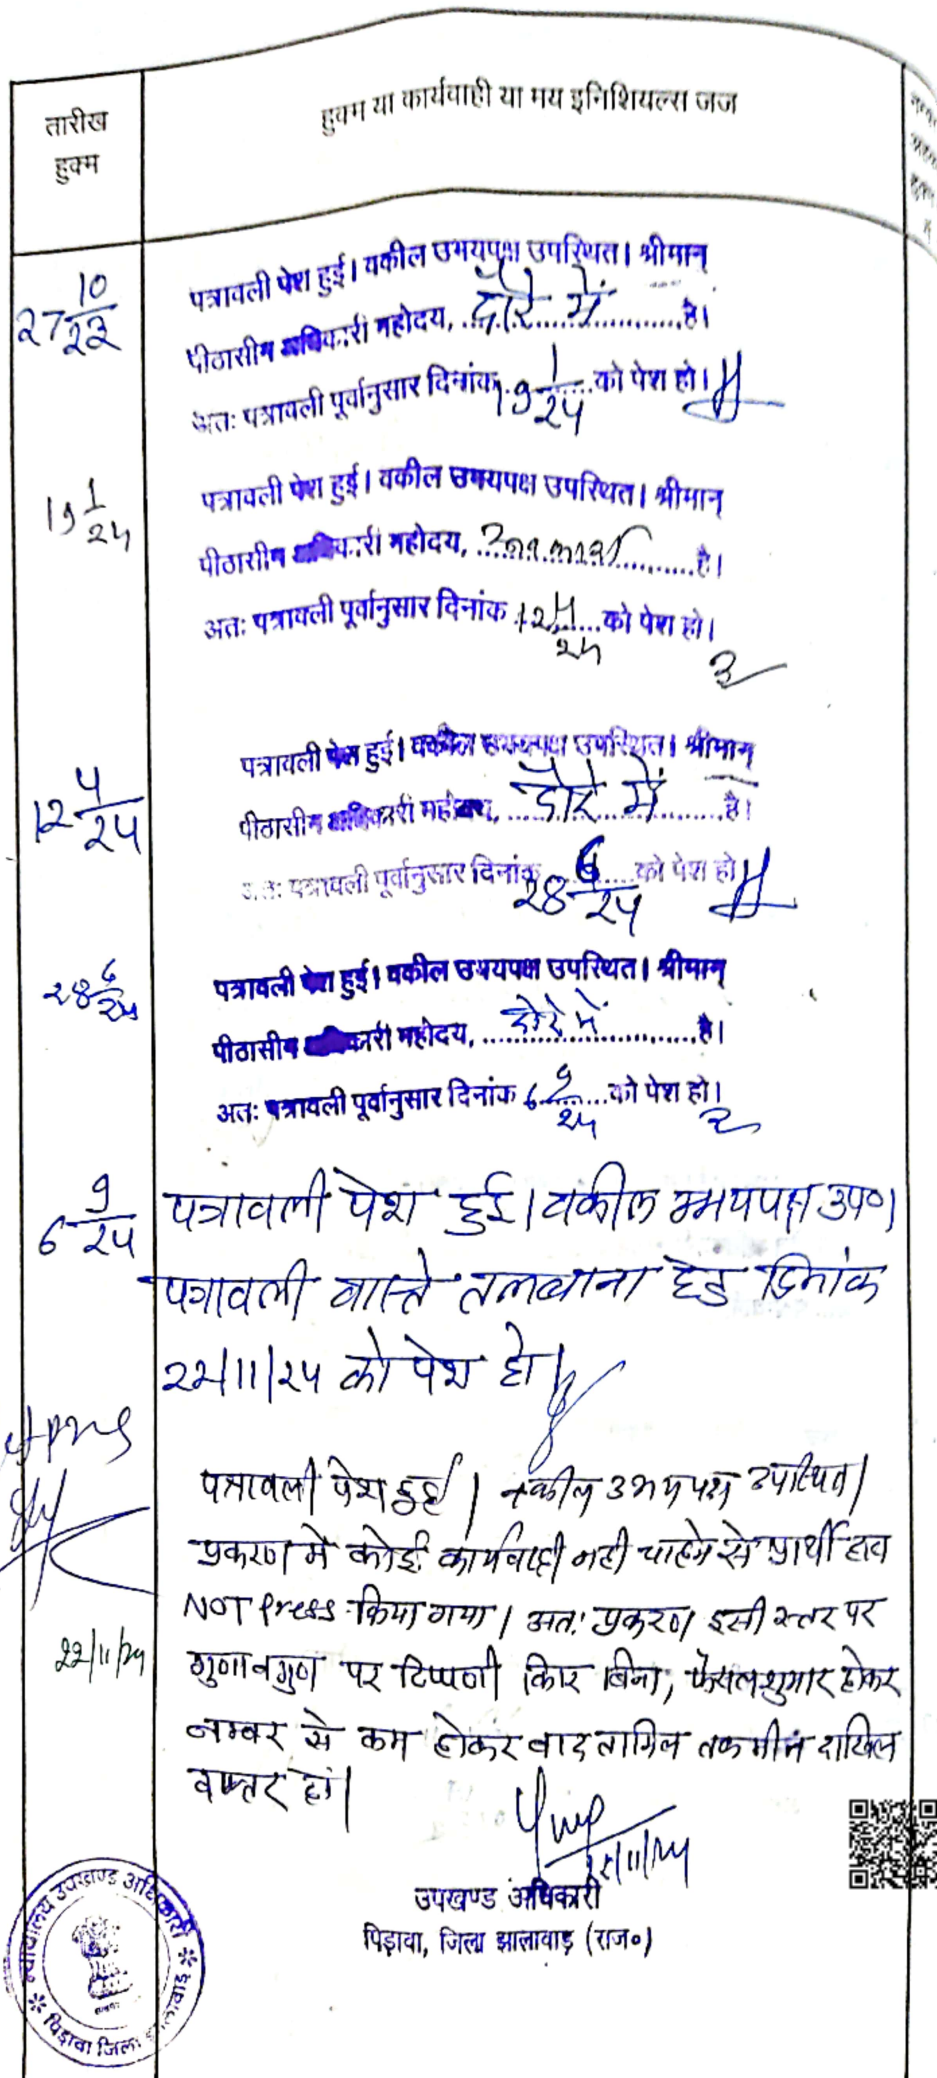 तारीख
हुक्म
हुक्म या कार्यवाही या मय इनिशियल्स जज
27 10/23
पत्रावली पेश हुई। वकील उभयपक्ष उपस्थित। श्रीमान्
पीठासीन अधिकारी महोदय, दौरे में है।
अतः पत्रावली पूर्वानुसार दिनांक 19 1/24 को पेश हो।
19 1/24
पत्रावली पेश हुई। वकील उभयपक्ष उपस्थित। श्रीमान्
पीठासीन अधिकारी महोदय, है।
अतः पत्रावली पूर्वानुसार दिनांक 12 4/24 को पेश हो।
12 4/24
पत्रावली पेश हुई। वकील उभयपक्ष उपस्थित। श्रीमान्
पीठासीन अधिकारी महोदय, दौरे में है।
अतः पत्रावली पूर्वानुसार दिनांक 28 6/24 को पेश हो
28 6/24
पत्रावली पेश हुई। वकील उभयपक्ष उपस्थित। श्रीमान्
पीठासीन अधिकारी महोदय, दौरे में है।
अतः पत्रावली पूर्वानुसार दिनांक 6 9/24 को पेश हो।
6 9/24
पत्रावली पेश हुई। वकील उभयपक्ष उप०।
पत्रावली वास्ते तलबाना हेतु दिनांक
22/11/24 को पेश हो।
पत्रावली पेश हुई। वकील उभयपक्ष उपस्थित।
प्रकरण में कोई कार्यवाही नही चाहने से प्रार्थी द्वारा
NOT Press किया गया। अतः प्रकरण इसी स्तर पर
22/11/24
गुणावगुण पर टिप्पणी किए बिना, फैसलशुमार होकर
नम्बर से कम होकर बाद तकमील दाखिल
दफ्तर हो।
22/11/24
उपखण्ड अधिकारी
पिड़ावा, जिला झालावाड़ (राज०)
न्यायालय उपखण्ड अधिकारी
पिड़ावा जिला झालावाड़